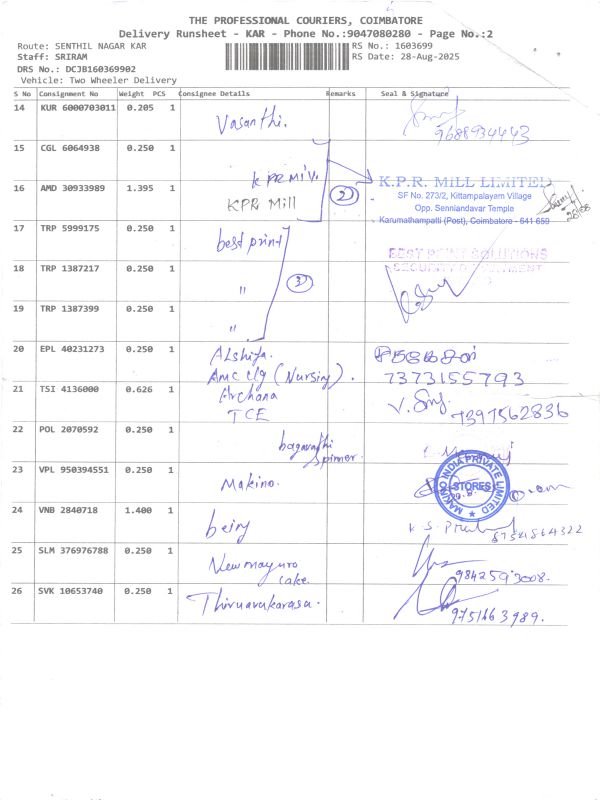 THE PROFESSIONAL COURIERS, COIMBATORE
Delivery Runsheet - KAR - Phone No.:9047080280 - Page No.:2
Route: SENTHIL NAGAR KAR
RS No.: 1603699
Staff: SRIRAM
RS Date: 28-Aug-2025
DRS No.: DCJB160369902
Vehicle: Two Wheeler Delivery
S No Consignment No Weight PCS Consignee Details Remarks Seal & Signature
14 KUR 6000703011 0.205 1 Vasanthi.
9688934443
15 CGL 6064938 0.250 1 KPR Mill.
K.P.R. MILL LIMITED
SF No. 273/2, Kittampalayam Village
Opp. Senniandavar Temple
Karumathampatti (Post), Coimbatore - 641 659
16 AMD 30933989 1.395 1 KPR Mill
2
17 TRP 5999175 0.250 1 best print
BEST PRINT SOLUTIONS
18 TRP 1387217 0.250 1 "
3
19 TRP 1387399 0.250 1 "
20 EPL 40231273 0.250 1 Alshifa.
Amc clg (Nursing).
7373155793
21 TSI 4136000 0.626 1 Archana
TCE
7397562836
22 POL 2070592 0.250 1 bagavathi
Spinner.
23 VPL 950394551 0.250 1 Makino.
MAKINO INDIA PRIVATE LIMITED
STORES
24 VNB 2840718 1.400 1
8754864322
25 SLM 376976788 0.250 1 New mayura
cake.
9842593008.
26 SVK 10653740 0.250 1 Thirunavukarasu.
9751463989.